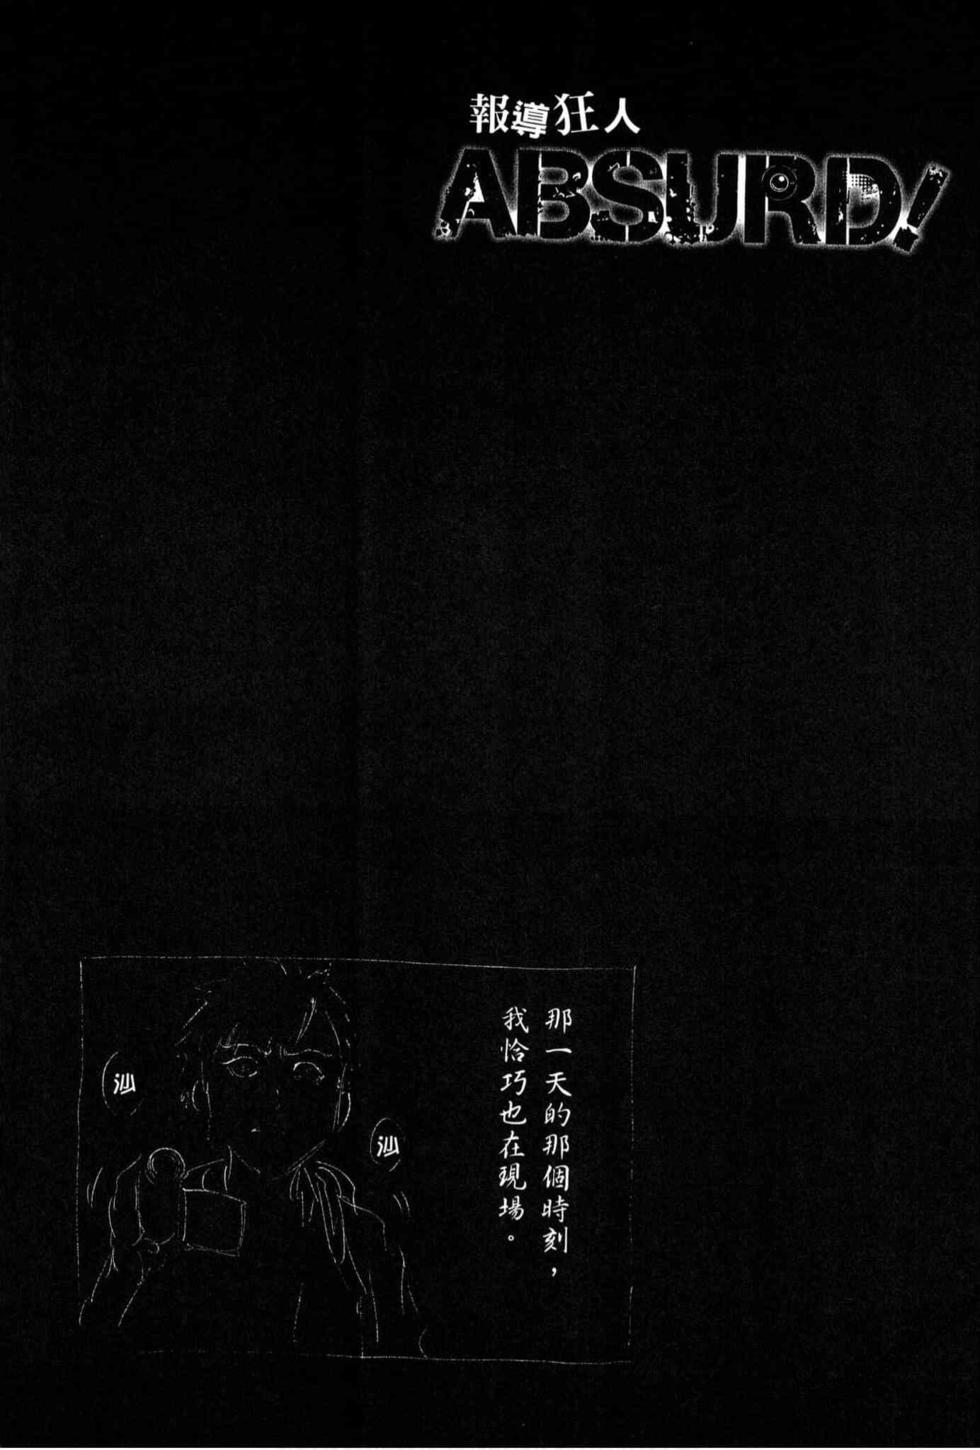 報導狂人
ABSURD!
那一天的那個時刻，
我恰巧也在現場。
汕
汕